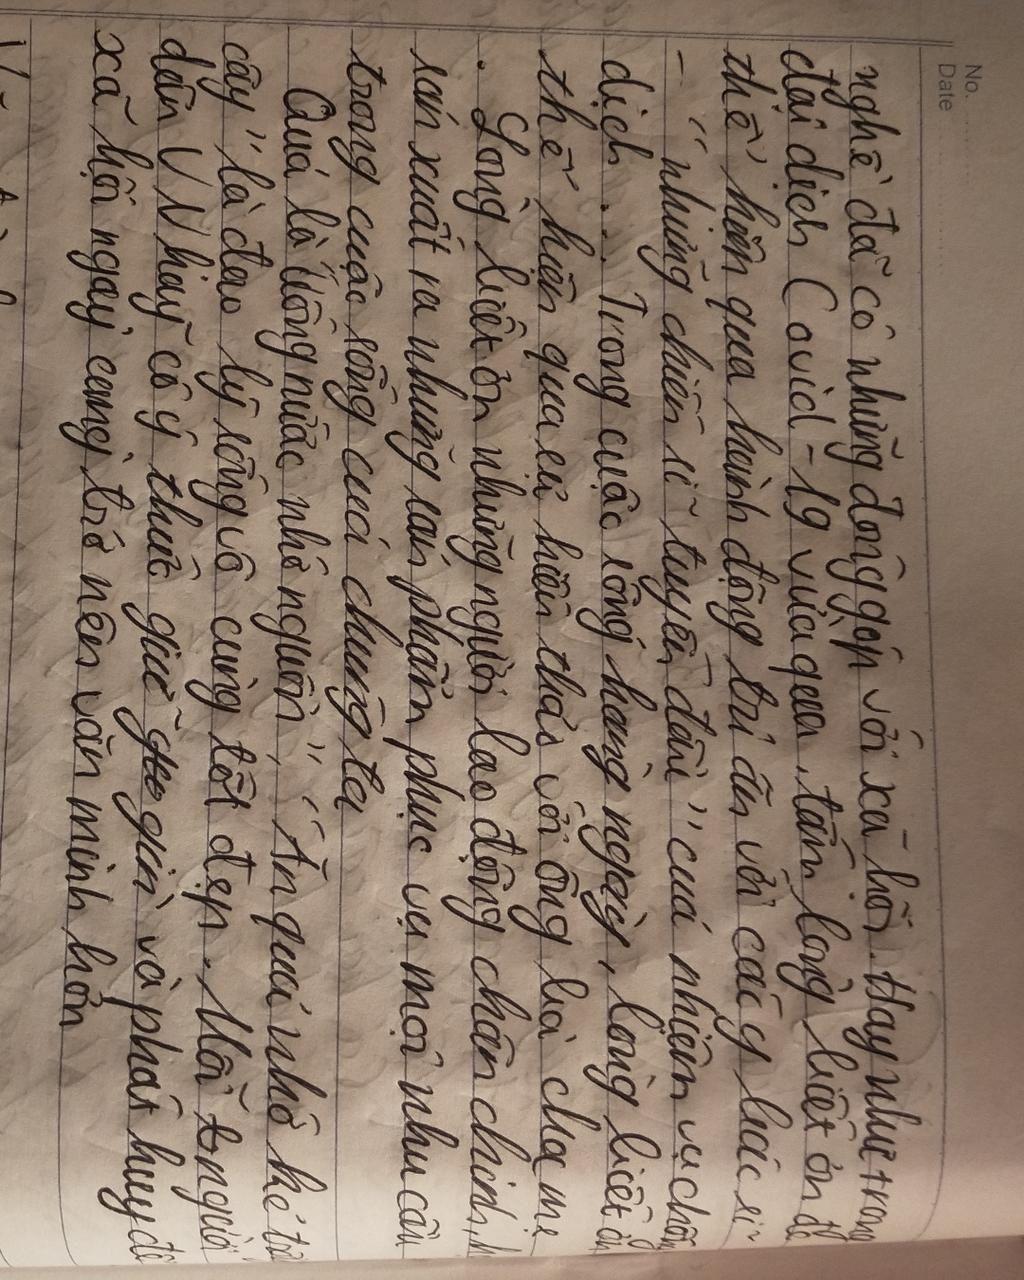 No.
Date
nghề đã có những đóng góp với xã hội. Hay như trong
đại dịch Covid-19 vừa qua, tấm lòng biết ơn đc
thể hiện qua hành động tri ân với các y bác sĩ
- "những chiến sĩ tuyến đầu" của nhiệm vụ chống
dịch ... Trong cuộc sống hàng ngày, lòng biết ơn
thể hiện qua sự hiếu thảo với ông bà cha mẹ
. Lòng biết ơn những người lao động chân chính,
sản xuất ra những sản phẩm phục vụ mọi nhu cầu
trong cuộc sống của chúng ta
Quả là "Uống nước nhớ nguồn", "Ăn quả nhớ kẻ trồng
cây" là đạo lý sống vô cùng tốt đẹp. Mỗi người
dân VN hãy có ý thức giữ gìn và phát huy để
xã hội ngày càng trở nên văn minh hơn